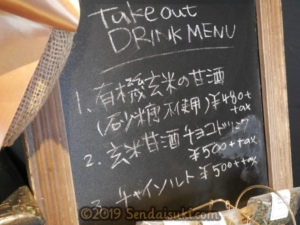 Takeout
DRINK MENU
1. 有機玄米の甘酒
(砂糖不使用)¥480+
tax
2. 玄米甘酒チョコドリンク
¥500+tax
3. チャイソルト ¥500+tax
©2019 Sendaisuki.com